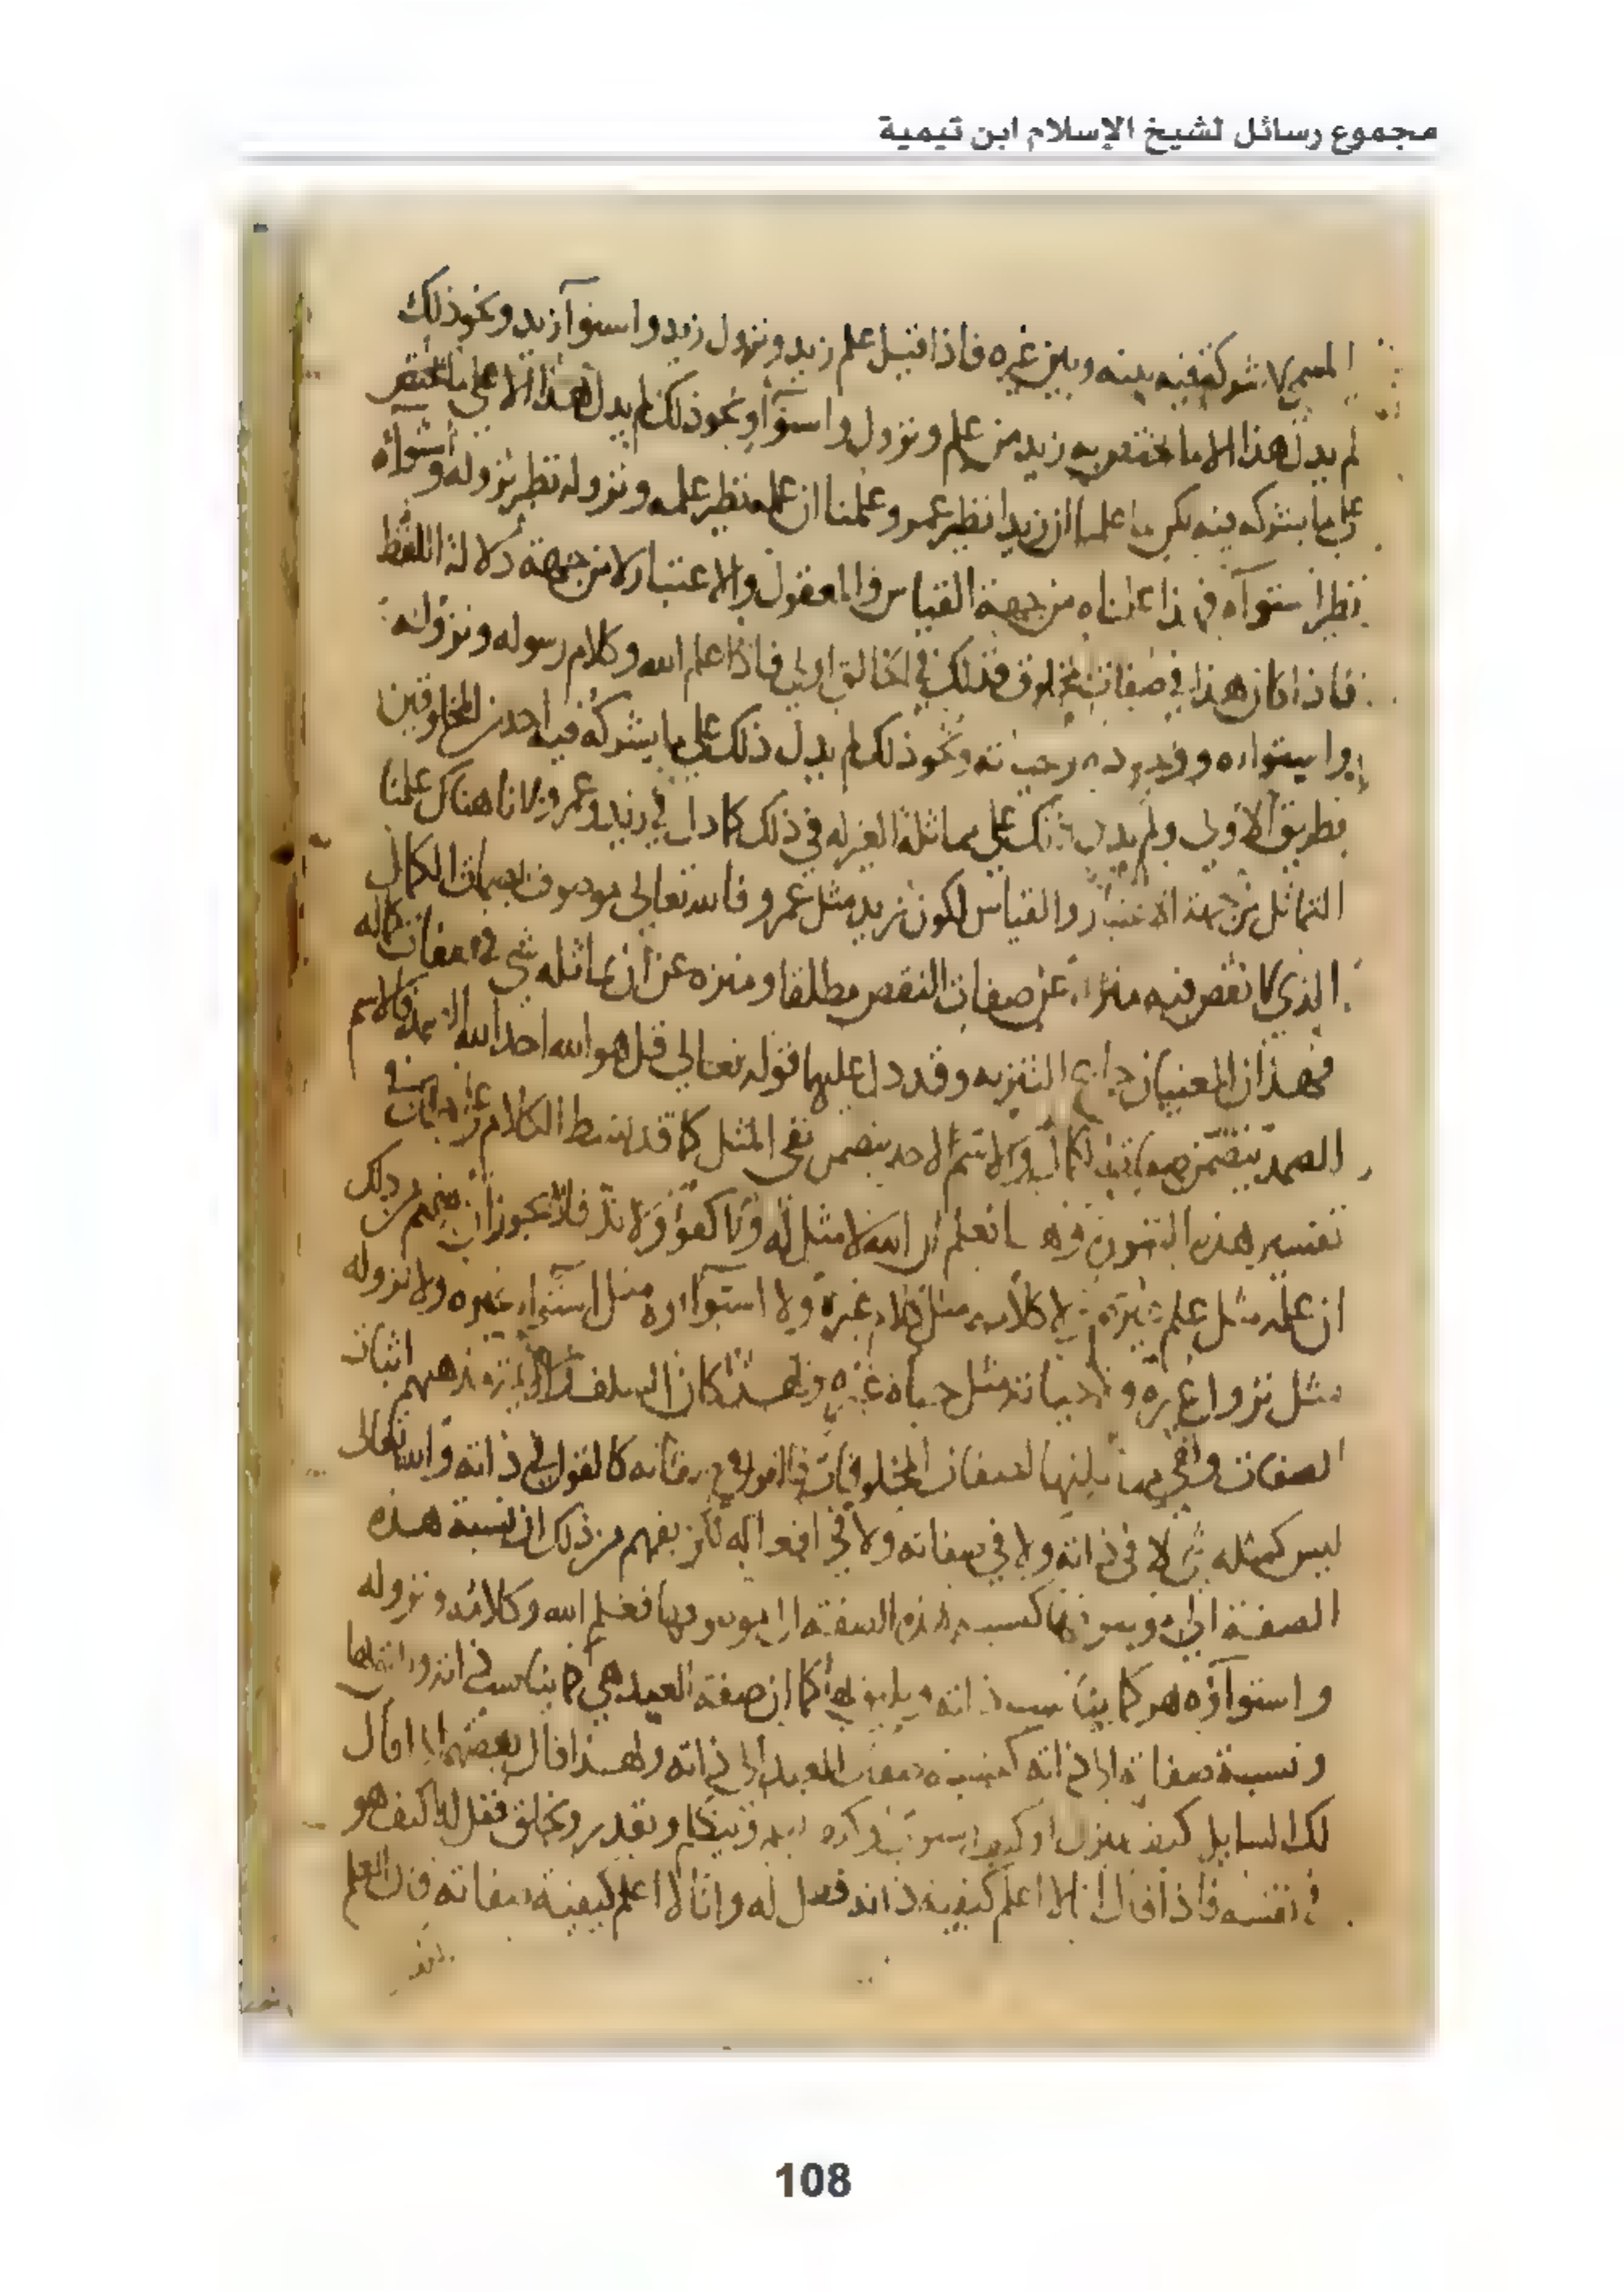 مجموع رسائل لشيخ الإسلام ابن تيمية
المسمى لا شركة فيه بينه وبين غيره فاذا قيل علم زيد ونزول زيد واستوآ زيد ونحو ذلك
لم يدل هذا الا ما يختص به زيد من علم ونزول واستوآ ونحو ذلك لم يدل هذا الا على ما يختص
على ما يشركه فيه لكن ما علمنا ان زيدا نظير عمرو وعلمنا ان علمه نظير علمه ونزوله نظير نزوله واستوآه
نظير استوآه فهذا علمناه من جهة القياس والمعقول والاعتبار لا من جهة دلالة اللفظ
فاذا كان هذا في صفات المخلوق فذلك في الخالق اولى فاذا علم الله وكلام رسوله ونزوله
واستواءه ووجوده وحياته ونحو ذلك لم يدل ذلك على ما يشركه فيه احد من المخلوقين
بطريق الاولى ولم يدل ذلك على مماثلة الغير له في ذلك كما دل في زيد وعمرو لانا هناك علمنا
التماثل من جهة الاعتبار والقياس لكون زيد مثل عمرو فالله تعالى موصوف بصفات الكمال
الذي لا نقص فيه منزه عن صفات النقص مطلقا ومنزه عن ان يماثله شي في صفات كماله
فهذان المعنيان جماع التنزيه وقد دل عليهما قوله تعالى قل هو الله احد الله الصمد فالاسم
الصمد يتضمن صفات الكمال والاسم الاحد يتضمن نفي المثل كما قد بسط الكلام على ذلك في
تفسير هذه السورة انا نعلم ان الله لا مثل له ولا كفؤ ولا ند فلا يجوز ان يفهم من ذلك
ان علمه مثل علم غيره ولا كلامه مثل كلام غيره ولا استوآوه مثل استوآء غيره ولا نزوله
مثل نزول غيره ولا حياته مثل حياة غيره ولهذا كان السلف والائمة مذهبهم اثبات
الصفات ونفي مماثلتها لصفات المخلوقات فالقول في صفاته كالقول في ذاته والله تعالى
ليس كمثله شي لا في ذاته ولا في صفاته ولا في افعاله لكن يفهم من ذلك ان نسبة هذه
الصفة الى موصوفها كنسبة هذه الصفة الى موصوفها فعلم الله وكلامه ونزوله
واستوآؤه هو كما يناسب ذاته ويليق بها كما ان صفة العبد هي كما يناسب ذاته ويليق بها
ونسبة صفاته الى ذاته كنسبة صفات العبد الى ذاته ولهذا قال بعضهم اذا قال
لك السايل كيف ينزل او كيف استوى او كيف يعلم ويتكلم ويقدر ويخلق فقل له كيف هو
في نفسه فاذا قال انا لا اعلم كيفية ذاته فقل له وانا لا اعلم كيفية صفاته فان العلم
108